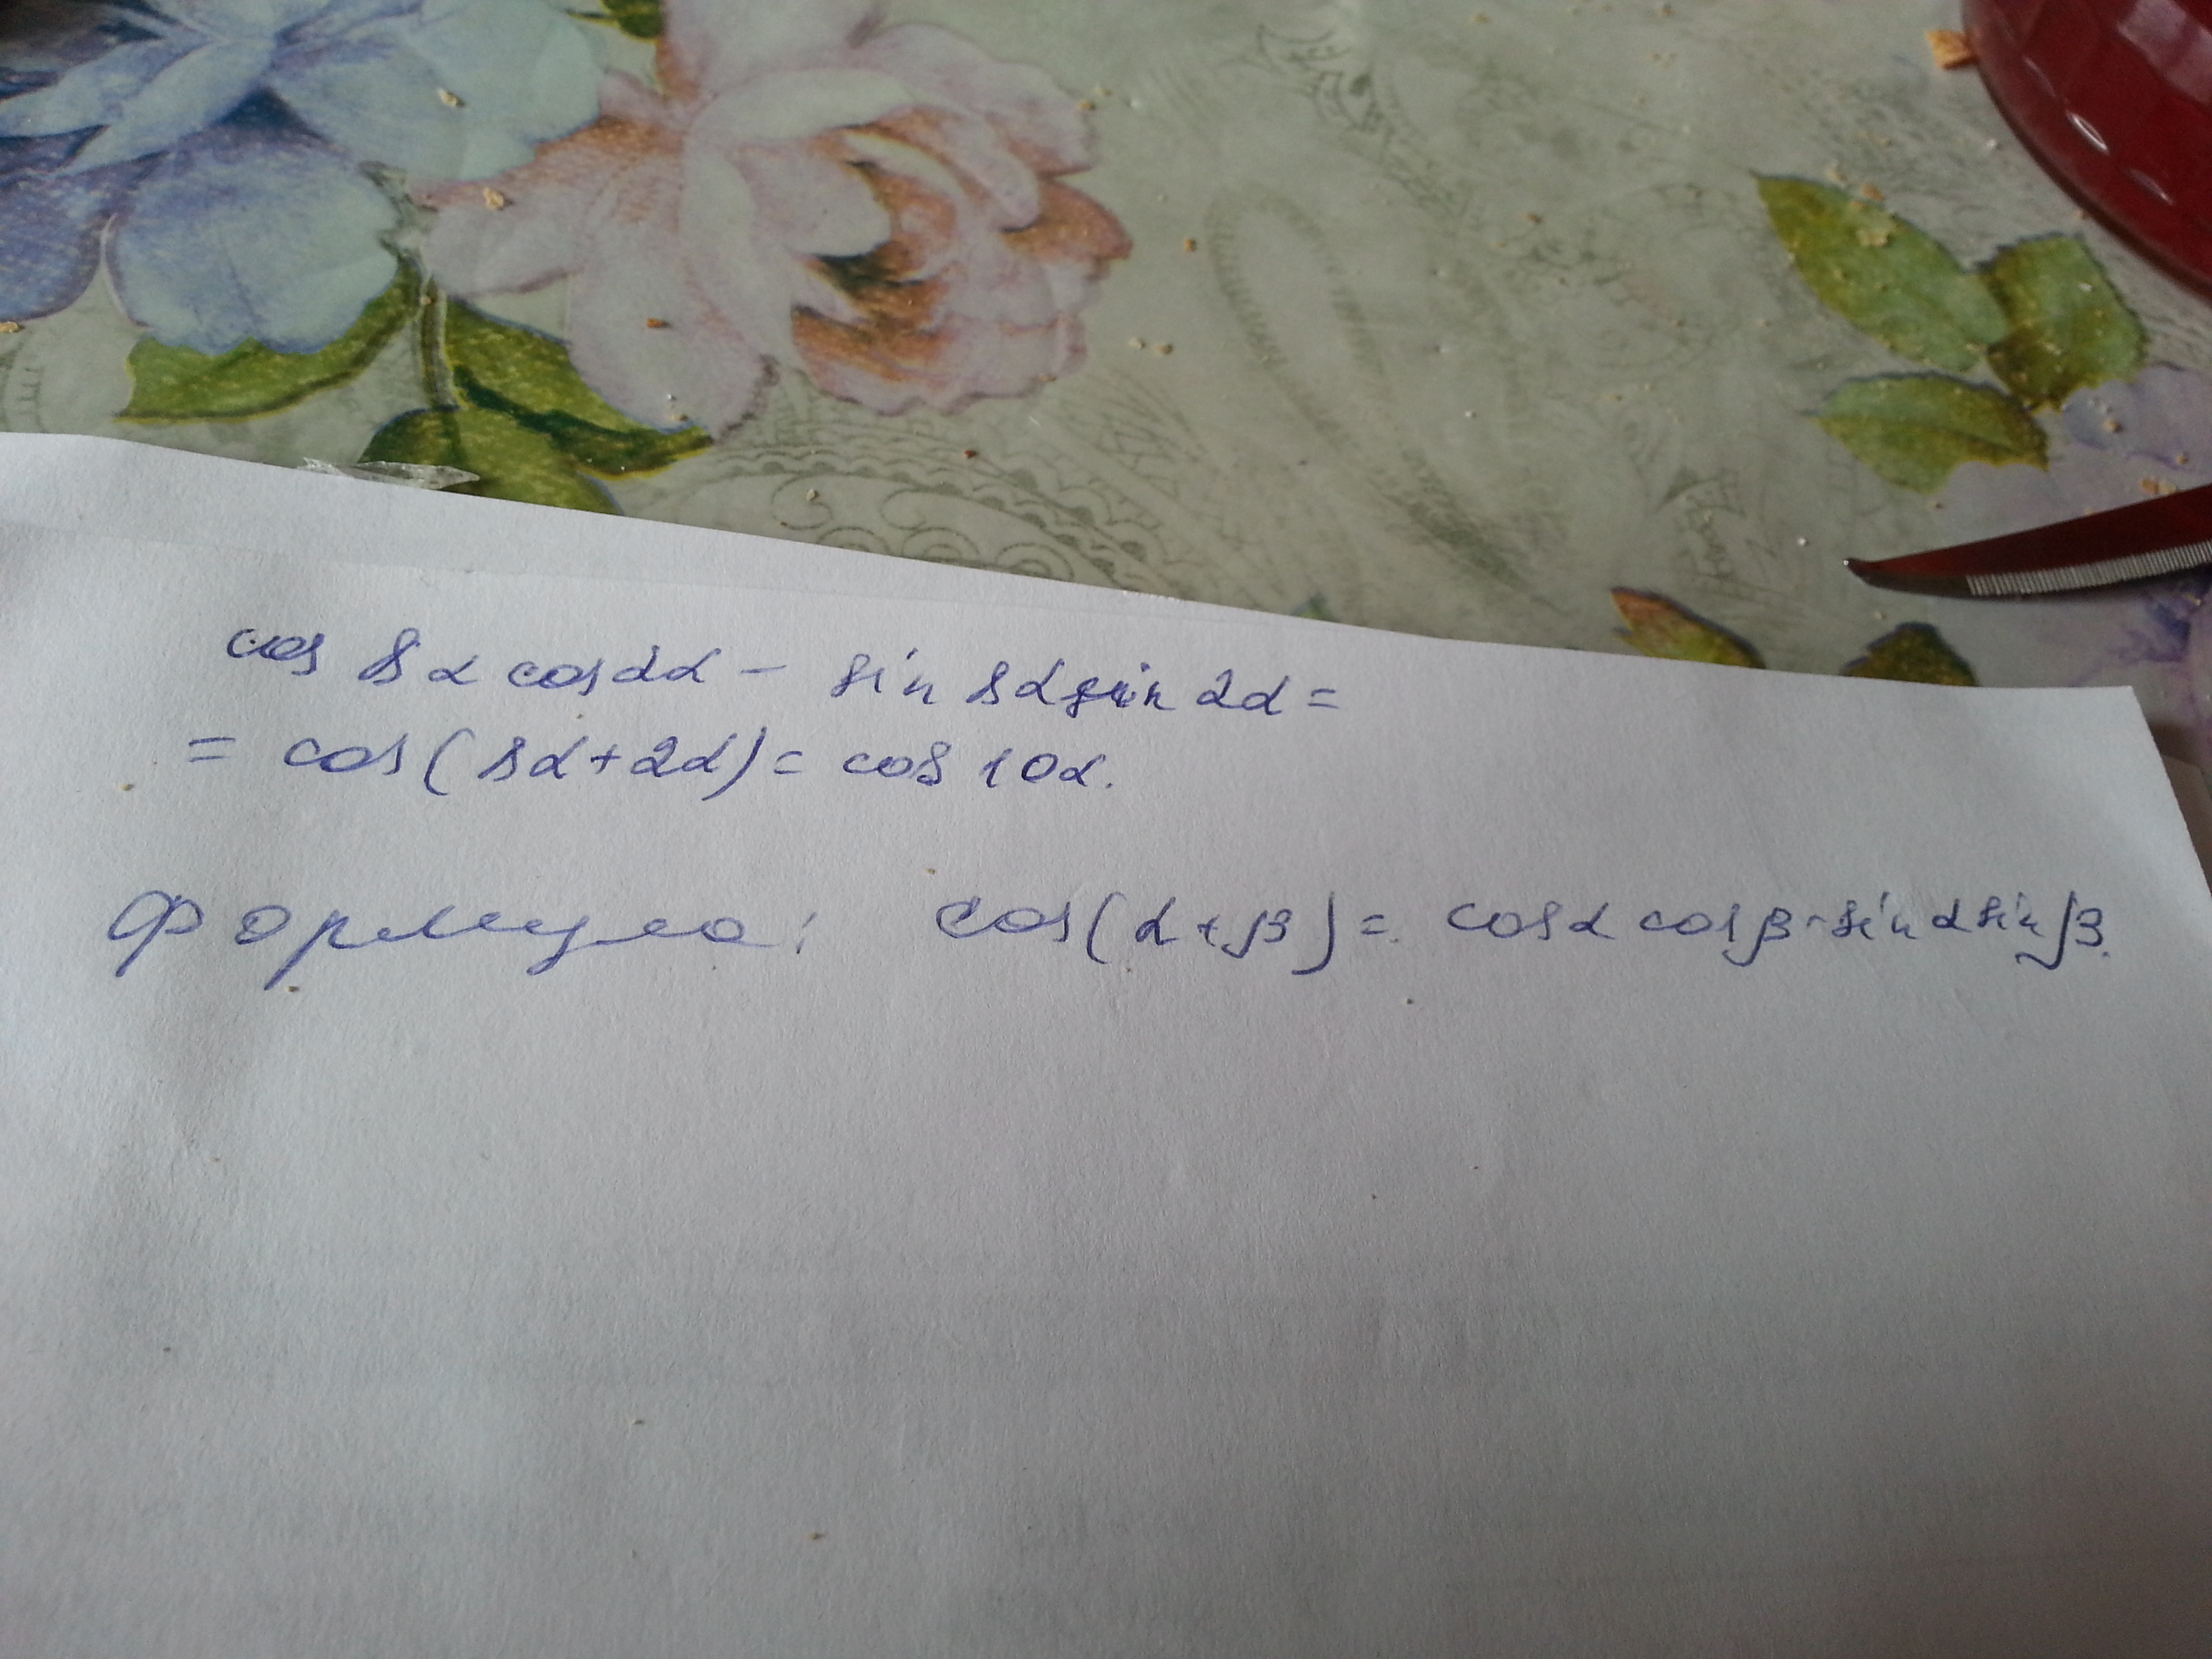 cos 8α cos2α - sin 8α sin 2α =
= cos(8α+2α) = cos 10α.
Формула: cos(α+β) = cosα cosβ - sinα sinβ.